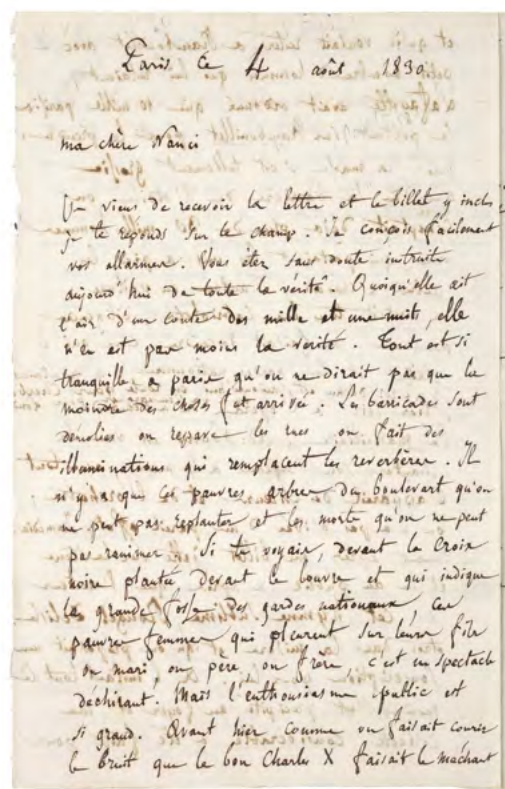 Paris ce 4 août 1830
ma chère Nanci
Je viens de recevoir la lettre et le billet y inclus
je te réponds sur le champ. Je conçois facilement
vos allarmes. Vous êtes sans doute instruits
aujourd'hui de toute la vérité. Quoiqu'elle ait
l'air d'un conte des mille et une nuits, elle
n'en est pas moins la vérité. Tout est si
tranquille a paris qu'on ne dirait pas que la
moindre des choses fut arrivée. Les barricades sont
démolies on repave les rues on fait des
illuminations qui remplacent les reverbères. Il
n'y a que ces pauvres arbres du boulevart qu'on
ne peut pas replanter et les morts qu'on ne peut
pas ranimer. Si tu voyais, devant la croix
noire plantée devant le louvre et qui indique
la grande fosse des gardes nationaux, ces
pauvres femmes qui pleurent sur leurs fils
ou mari, ou père, ou frère c'est un spectacle
déchirant. Mais l'enthousiasme public est
si grand. Avant hier comme on faisait courir
le bruit que le bon Charles X faisait le méchant